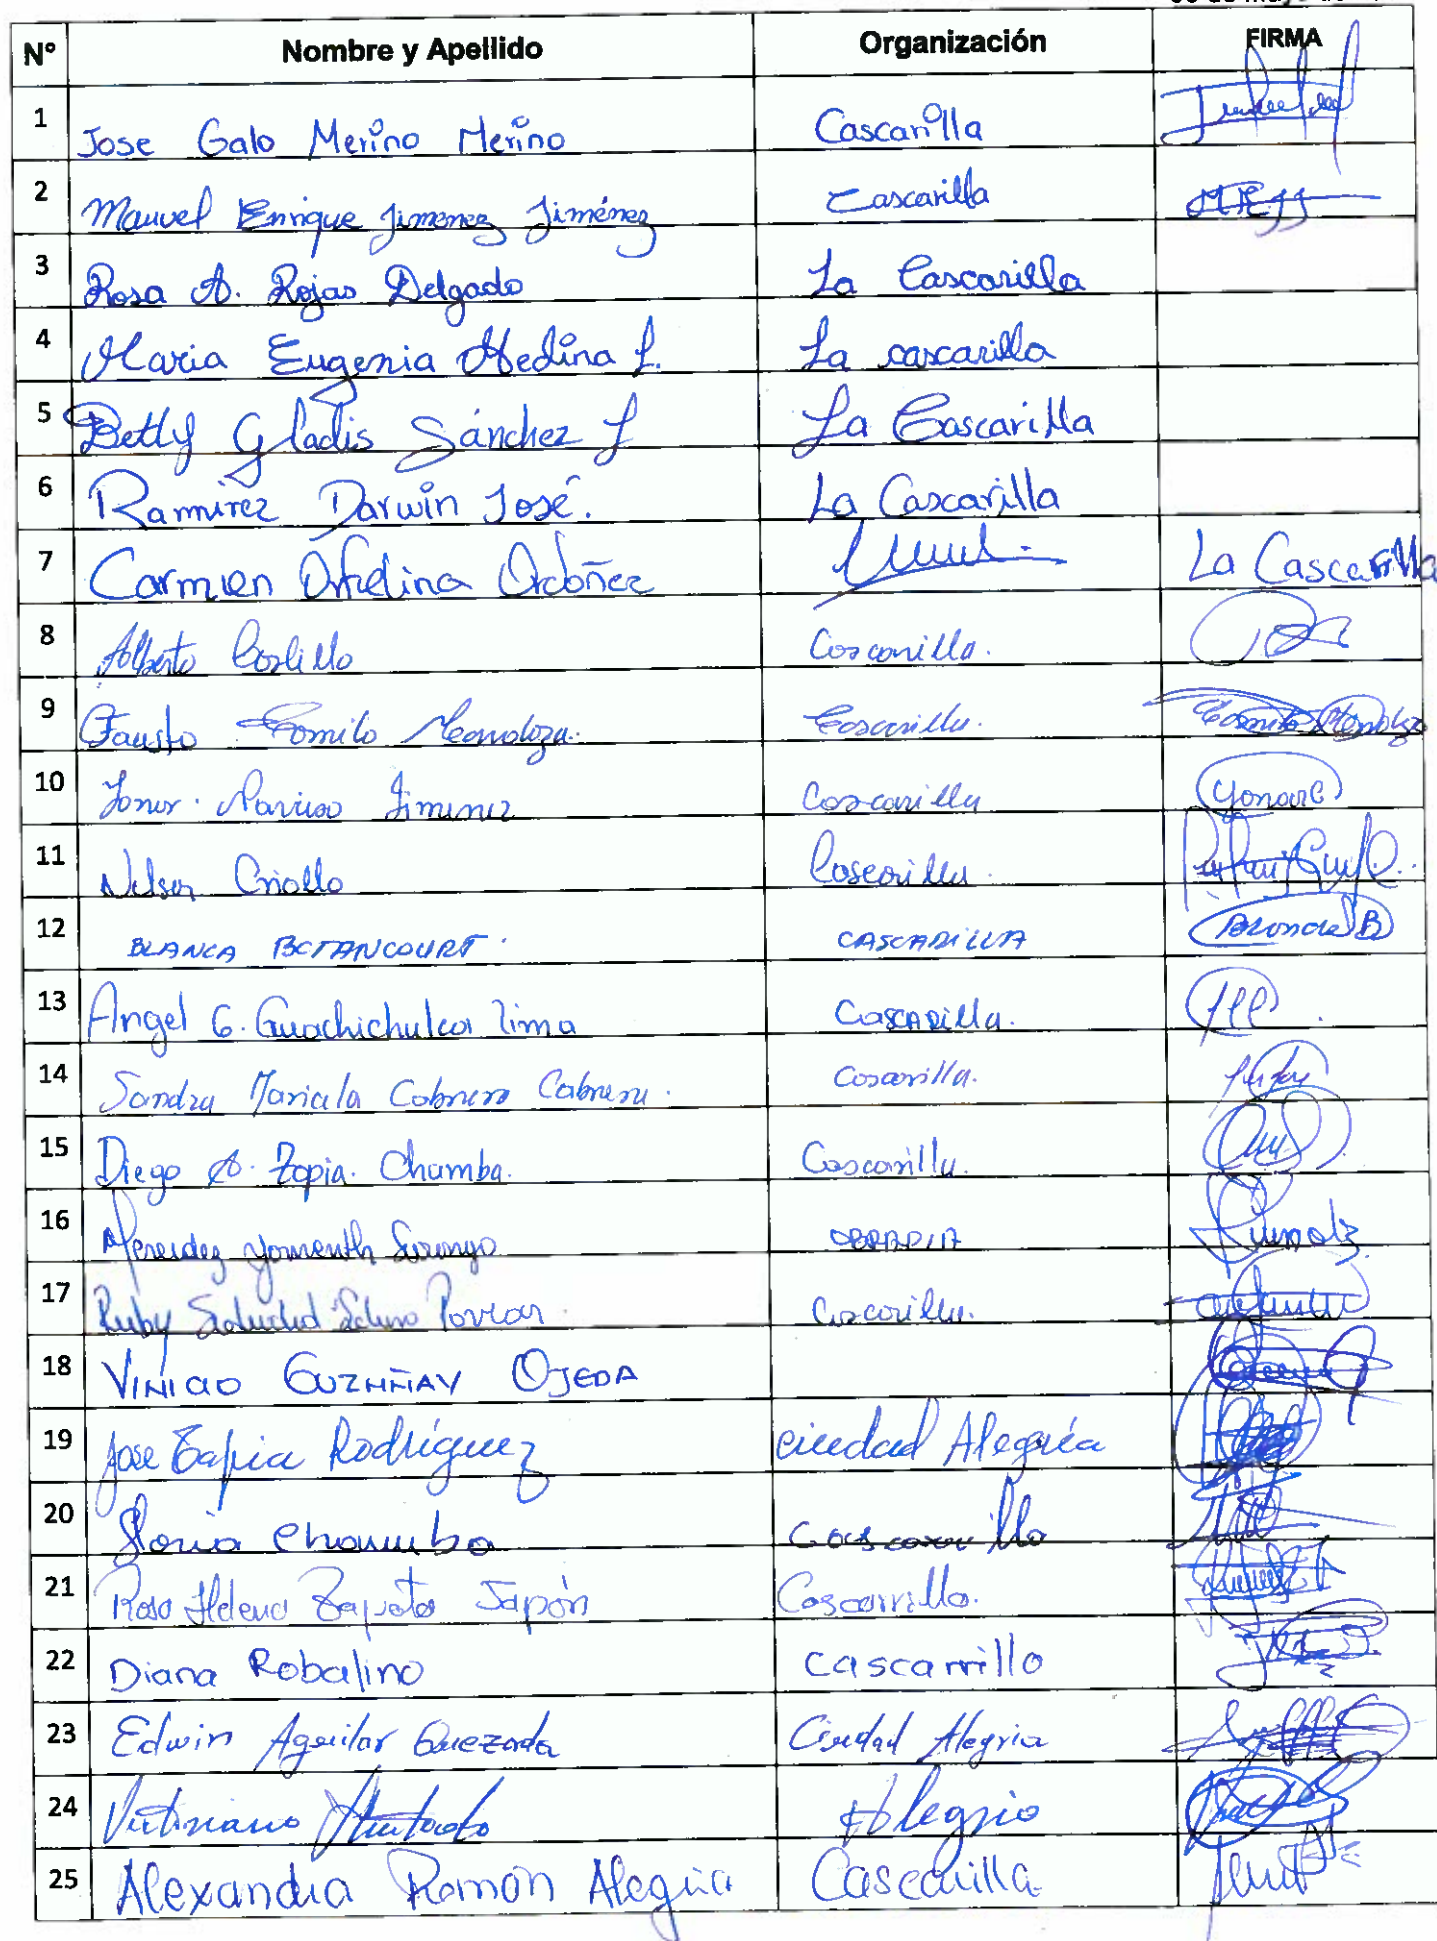 Nº Nombre y Apellido Organización FIRMA
1 Jose Galo Merino Merino Cascarilla
2 Manuel Enrique Jimenez Jiménez Cascarilla MEJJ
3 Rosa A. Rojas Delgado La Cascarilla
4 Maria Eugenia Medina L. La cascarilla
5 Betty Gladis Sánchez L La Cascarilla
6 Ramirez Darwin José. La Cascarilla
7 Carmen Ofelina Ordoñez La Cascarilla
8 Alberto Coscarilla.
9 Fausto Camilo Mendoza. Coscarilla. Camilo Mendoza
10 Narciso Jimenez Coscarilla
11 Nelson Criollo Coscarilla.
12 BLANCA BETANCOURT. CASCARILLA Blanca B
13 Angel G. Guachichulca Zima Cascarilla.
14 Sandra Mariela Cabrera Cabrera. Coscarilla.
15 Diego A. Tapia. Chamba. Coscarilla.
16 OBRAPIA
17 Ruby Soledad Coscarilla.
18 VINICIO GUZHÑAY OJEDA
19 Jose Tapia Rodríguez ciudad Alegría
20 Chamba Cascarilla
21 Rosa Elena Zapata Japón Coscarrilla.
22 Diana Robalino Cascarrillo
23 Edwin Aguilar Quezada Ciudad Alegria
24 Victoriano Hurtado Alegrio
25 Alexandra Ramón Alegria Cascarilla